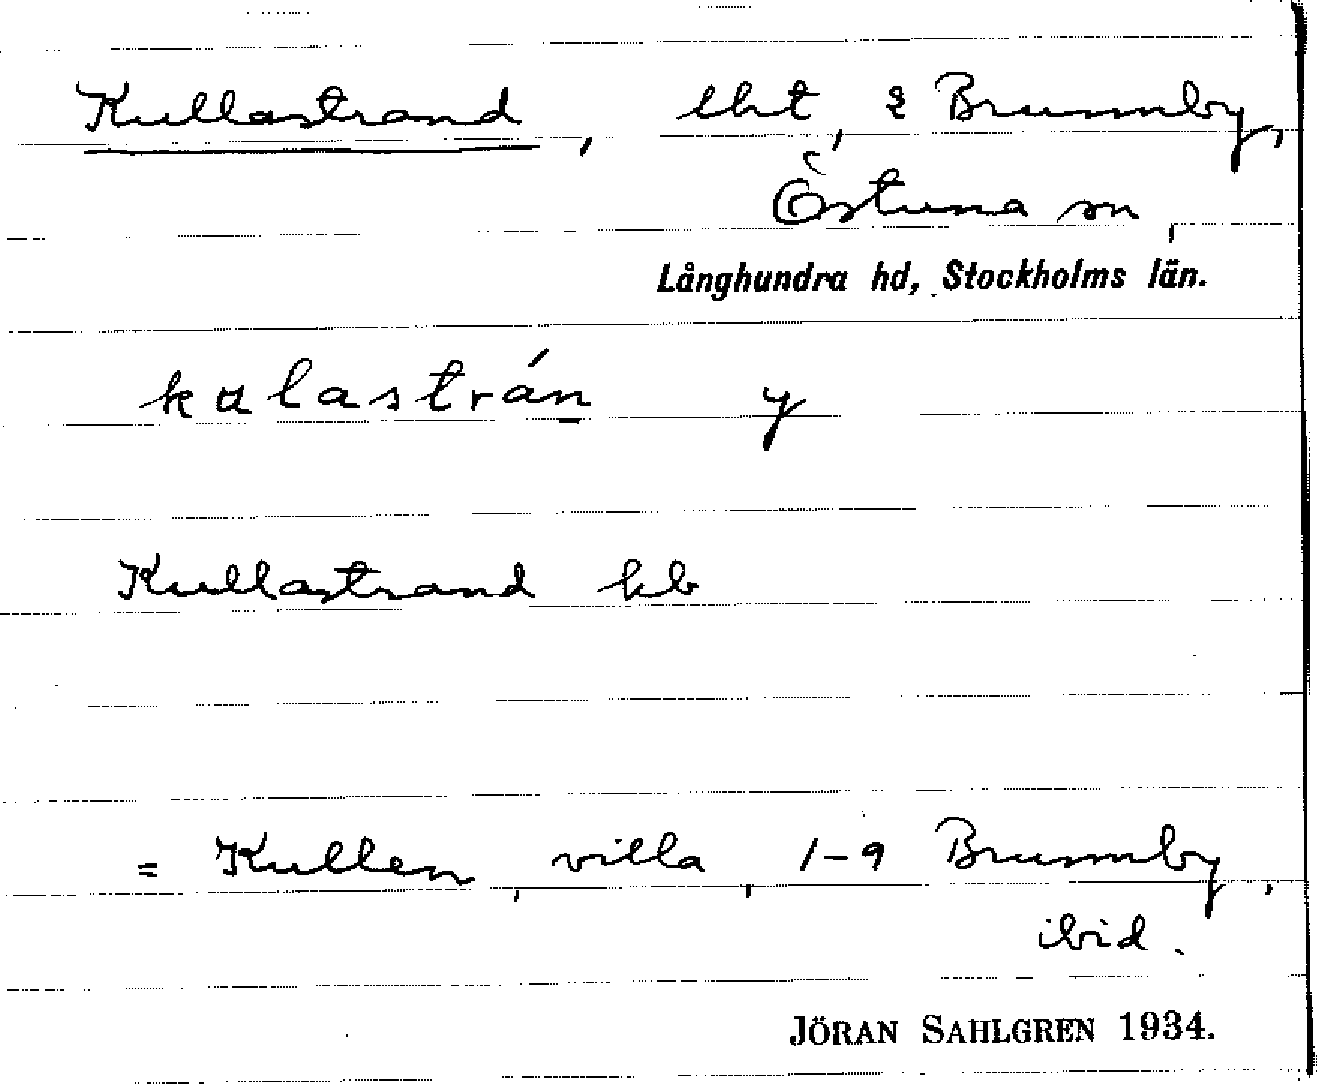 Kullastrand, lht, å Brunnby,
Östuna sn,
Långhundra hd, Stockholms län.
kulastrán y
Kullastrand kb
= Kullen, villa, 1-9 Brunnby,
ibid.
JÖRAN SAHLGREN 1934.